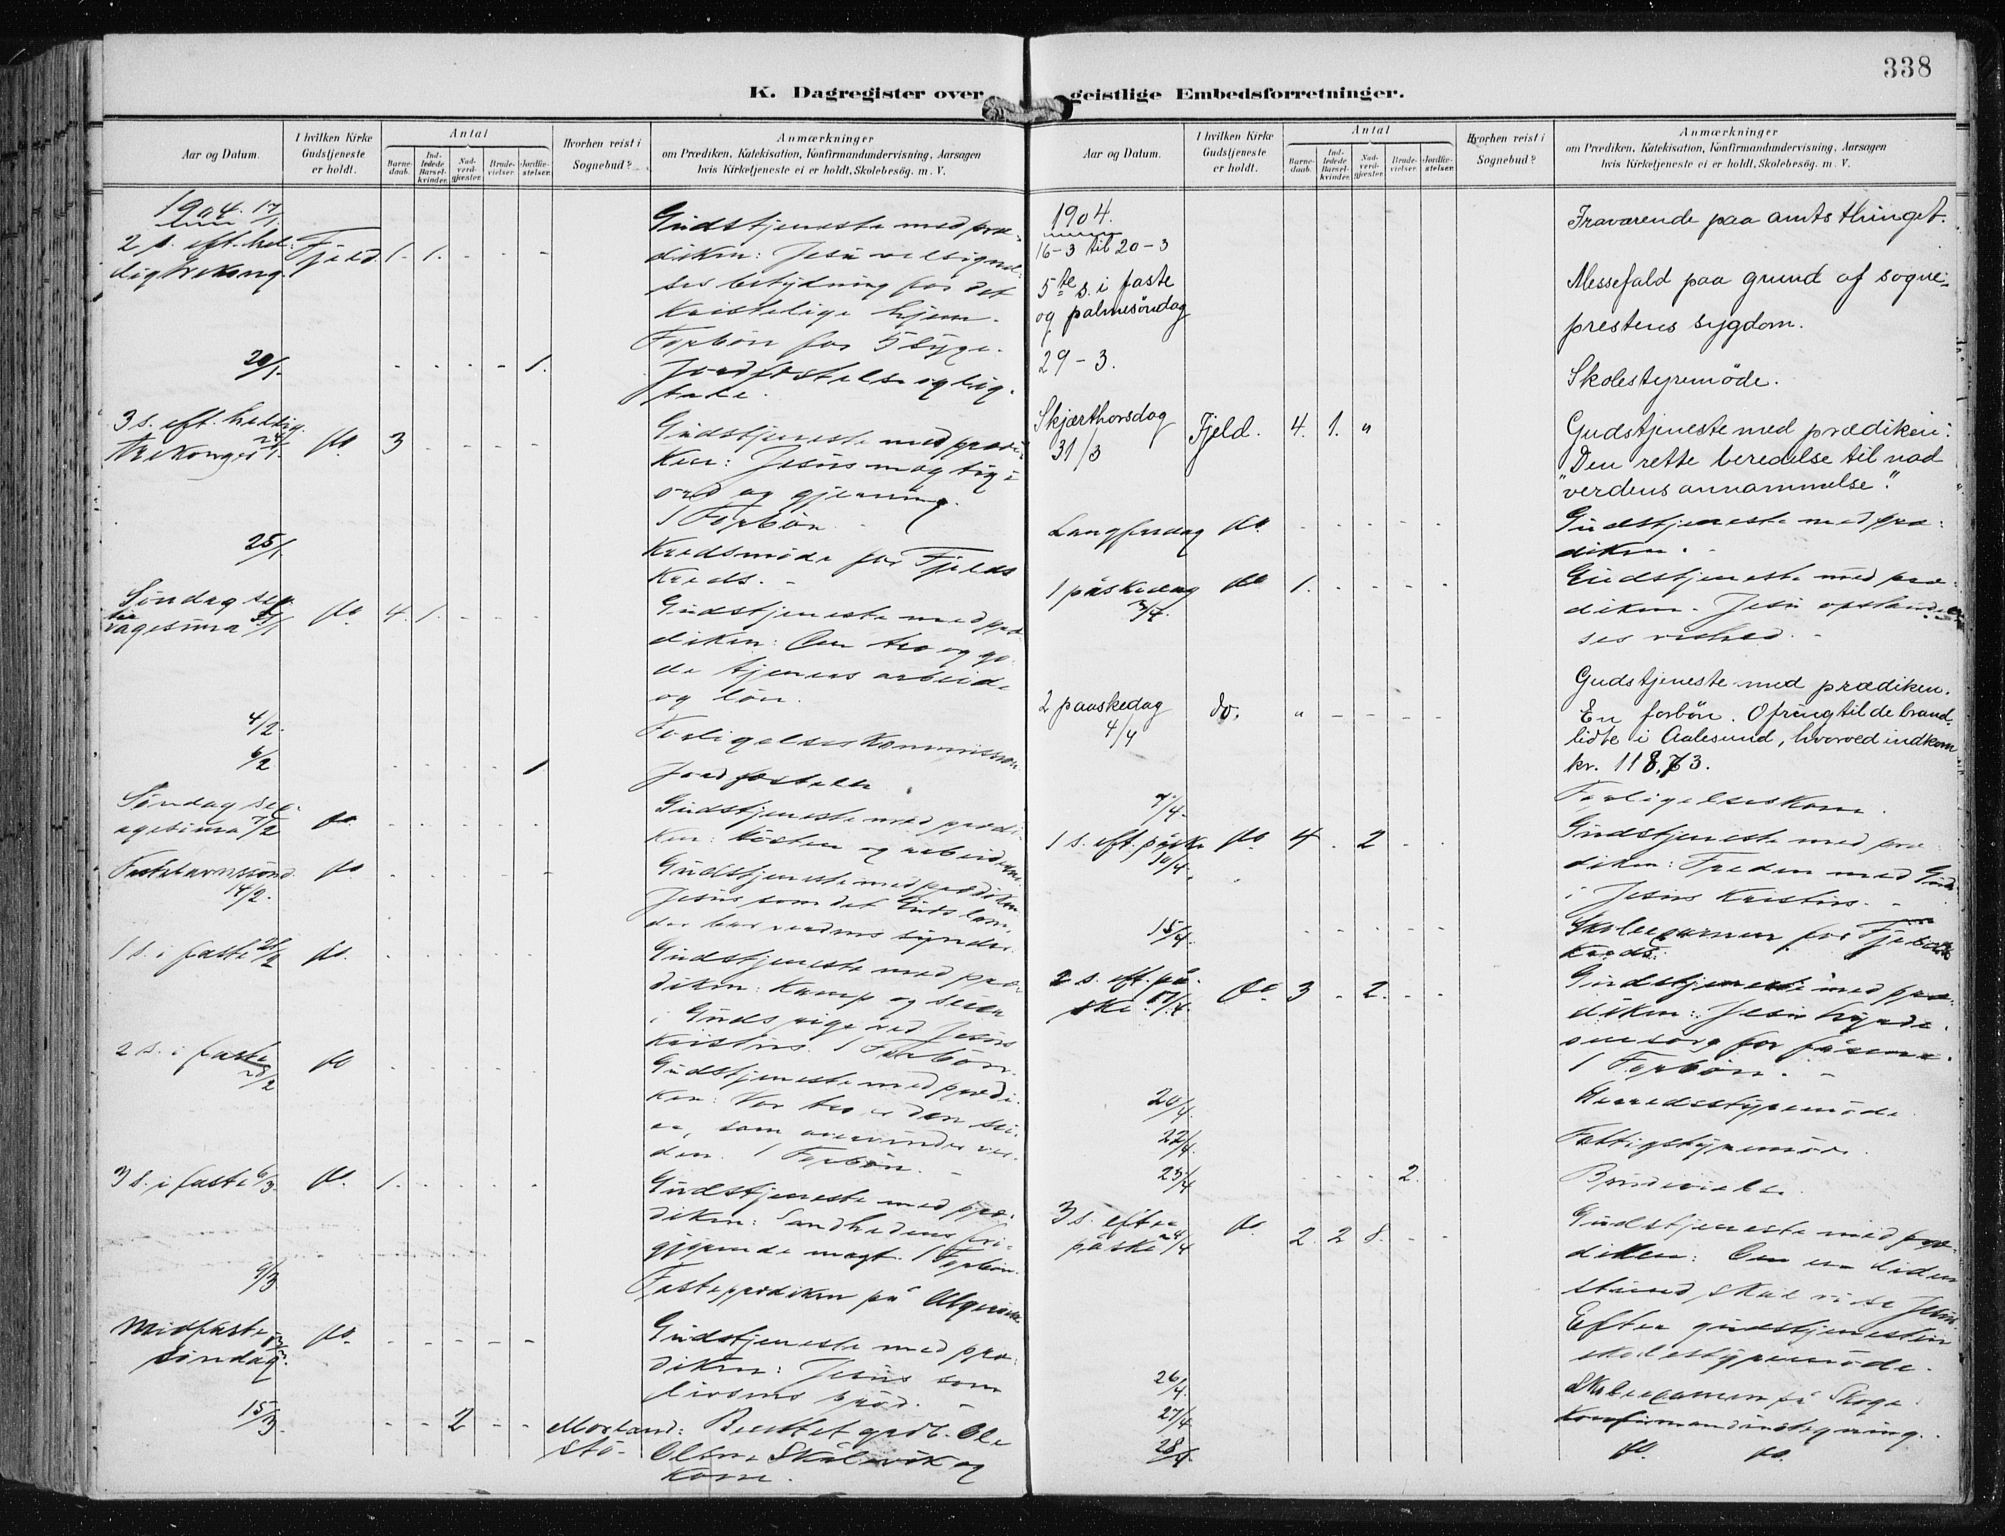 338
K. Dagregister over geistlige Embedsforretninger.
Aar og Datum.
I hvilken Kirke Gudstjeneste er holdt.
Antal
Barne-daab.
Ind-ledede Barsel-kvinder.
Nad-verd-gjæster.
Brude-vielser.
Jordfæ-stelser.
Hvorhen reist i Sognebud?
Anmærkninger
om Prædiken, Katekisation, Konfirmandundervisning, Aarsagen
hvis Kirketjeneste ei er holdt, Skolebesøg. m. V.
1904. 17/1.
2 s. eft. hel- Fjeld 1. 1. - - - Gudstjeneste med præ-
ligtrekong. diken: Jesu velsignel-
ses betydning for det
kristelige hjem.
Forbøn for 5 syge.
20/1. - - - - 1. Jordfæstelse og lig-
tale.
3 s. eft. hellig- do 3 - - - - Gudstjeneste med prædi-
trekonger 24/1. ken: Jesus mægtig i
ord og gjerning.
1 Forbøn.
25/1 Kredsmøde for Fjelds
Kreds. -
Søndag sep- do 4. 1. - - - Gudstjeneste med præ-
tuagesima 31/1 diken: Om tro og go-
de tjeneres arbeide
og løn.
4/2. Forligelseskommission
6/2 - - - - 1 Jordfæstelse
Søndag sex- do. - - - - - Gudstjeneste med prædi-
agesima 7/2 ken: høsten og arbeiderne.
Fastelavnssønd. do - - - - - Gudstjeneste med prædiken
14/2. Jesus som det Guds lam,
der bar verdens synder.
1 s. i faste 21/2 do. - - - - - Gudstjeneste med præ-
diken: Kamp og seier
i Guds rige ved Jesus
Kristus. 1 Forbøn.
2 s. i faste do - - - - - Gudstjeneste med prædi-
28/2 ken: Vor tro er den sei-
er, som overvinder ver-
den. 1 Forbøn. -
3 s. i faste 6/3. do. 1. - - - - Gudstjeneste med præ-
diken: Sandhedens fri-
gjørende magt. 1 Forbøn.
9/3 Fasteprædiken på Algerøen
Midfaste- do. - - - - - Gudstjeneste med præ-
søndag 13/3. diken: Jesus som
livsens brød. -
15/3. - - 2 - - Morland: Berettet grdb. Ole
stø- Olsen Skålevik og
kone.
Aar og Datum.
I hvilken Kirke Gudstjeneste er holdt.
Antal
Barne-daab.
Ind-ledede Barsel-kvinder.
Nad-verd-gjæster.
Brude-vielser.
Jordfæ-stelser.
Hvorhen reist i Sognebud?
Anmærkninger
om Prædiken, Katekisation, Konfirmandundervisning, Aarsagen
hvis Kirketjeneste ei er holdt, Skolebesøg. m. V.
1904.
16-3 til 20-3 Fraværende paa amtsthinget.
5te s. i faste Messefald paa grund af sogne-
og palmesøndag prestens sygdom.
29-3. Skolestyremøde.
Skjærthorsdag Fjeld. 4. 1. " Gudstjeneste med prædiken:
31/3 "Den rette beredelse til nad
verdens annammelse."
Langfredag do. - - - - - Gudstjeneste med præ-
diken. -
1 påskedag do 1. - - - - Gudstjeneste med præ-
3/4. diken. Jesu opstandel-
ses vished. -
2 paaskedag do. " - - - - Gudstjeneste med prædiken.
4/4 En forbøn. Ofring til de brand-
lidte i Aalesund, hvorved indkom
kr. 118,73.
7/4. Forligelseskom.
1 s. eft. påske do 4 - 2 - - Gudstjeneste med præ-
10/4. diken: Freden med Gud
i Jesus Kristus. -
15/4. - - - - - Skoleexamen for Fjeld
Kreds.
2 s. eft. på- do. 3 - 2. - - Gudstjeneste med præ-
ske. 17/4. diken: Jesu hyrde-
omsorg for fårene.
1 Forbøn. -
20/4. Herredsstyremøde
22/4. Fattigstyremøde
23/4 - - - 2. - Brudevielse.
3 s. efter do. 2. 2 8. - - Gudstjeneste med præ-
påske 24/4 diken: Om en liden
stund, skal vi se Jesus.
Efter gudstjenesten
skolestyremøde.
26/4. Skoleexamen på Skoge.
27/4 Konfirmandindtegning.
28/4. do. do.